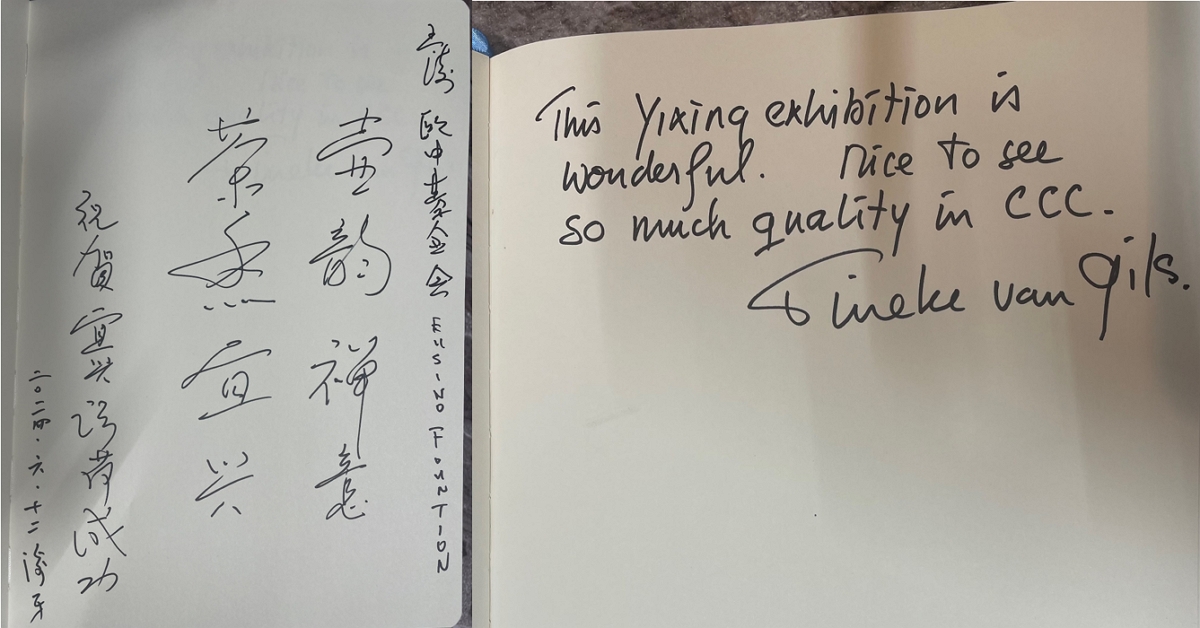 王涛 欧中基金会 EUSINO FOUNTION
壶韵禅意
茶 宜兴
祝贺宜兴访荷成功
二〇二四.六.十二 涛
This Yixing exhibition is
wonderful. Nice to see
so much quality in CCC.
Tineke van Gils.